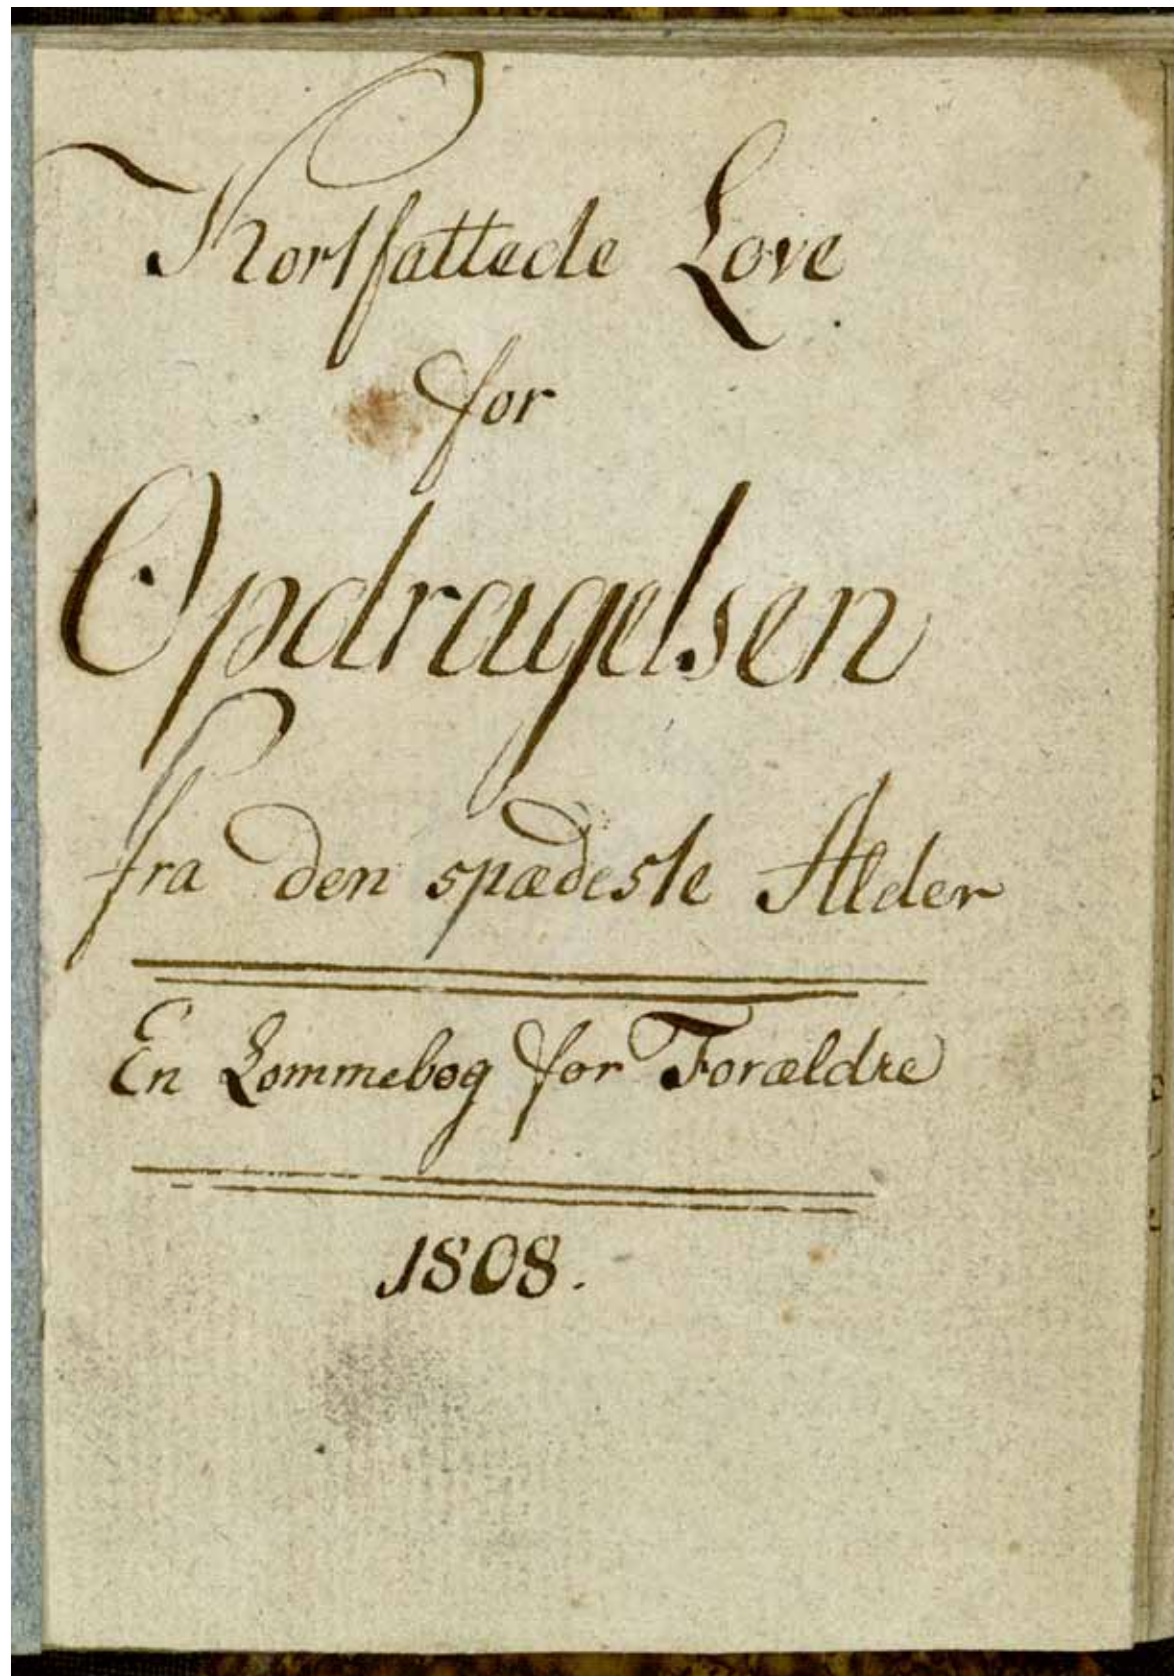 Kortfattede Love
for
Opdragelsen
fra den spædeste Alder
En Lommebog for Forældre
1808.